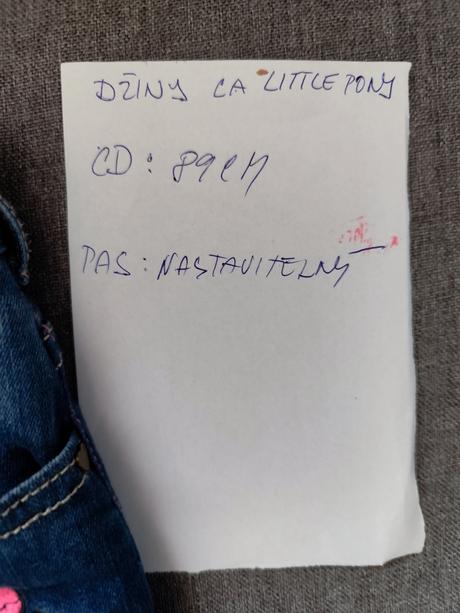 DŽÍNY CA LITTLE PONY
CD: 89CM
PAS: NASTAVITELNÝ